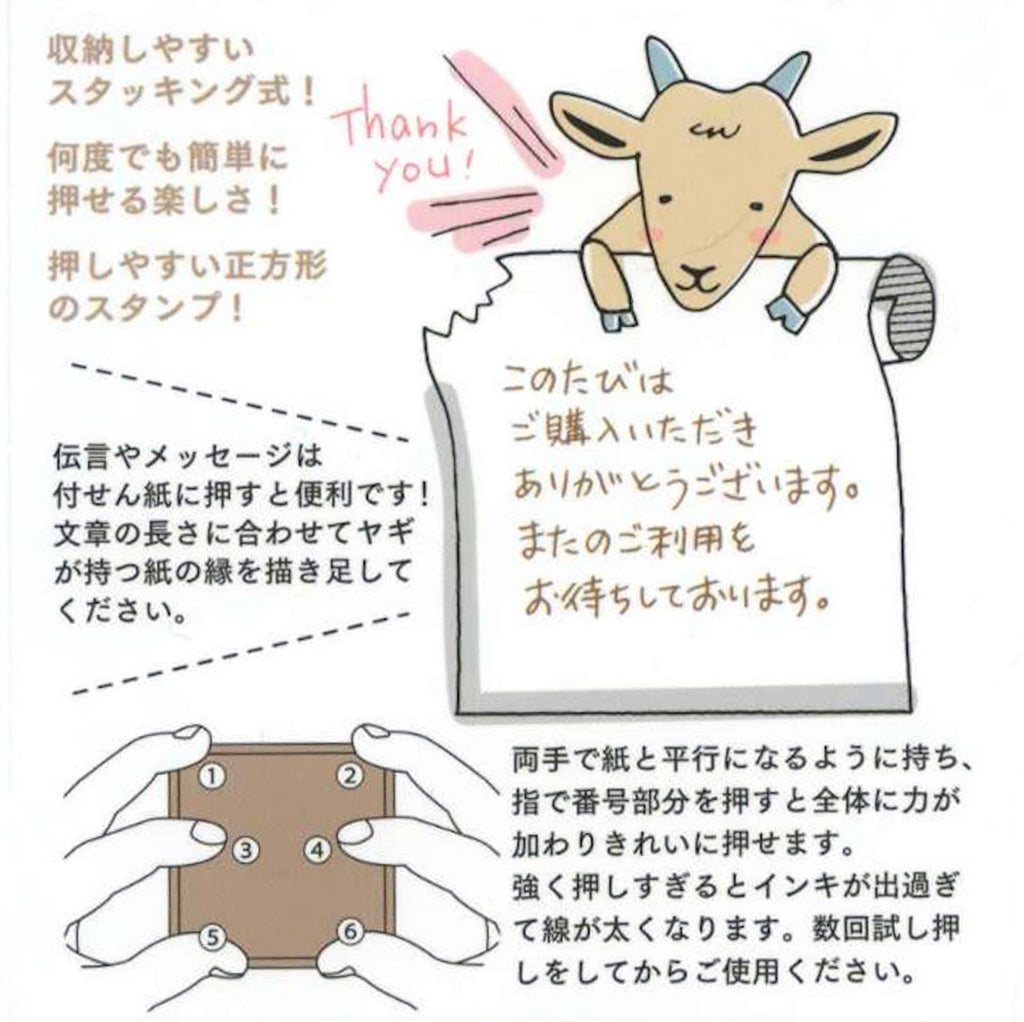 収納しやすい
スタッキング式！
何度でも簡単に
押せる楽しさ！
押しやすい正方形
のスタンプ！
Thank
you!
このたびは
ご購入いただき
ありがとうございます。
またのご利用を
お待ちしております。
伝言やメッセージは
付せん紙に押すと便利です！
文章の長さに合わせてヤギ
が持つ紙の縁を描き足して
ください。
① ②
③ ④
⑤ ⑥
両手で紙と平行になるように持ち、
指で番号部分を押すと全体に力が
加わりきれいに押せます。
強く押しすぎるとインキが出過ぎ
て線が太くなります。数回試し押
しをしてからご使用ください。